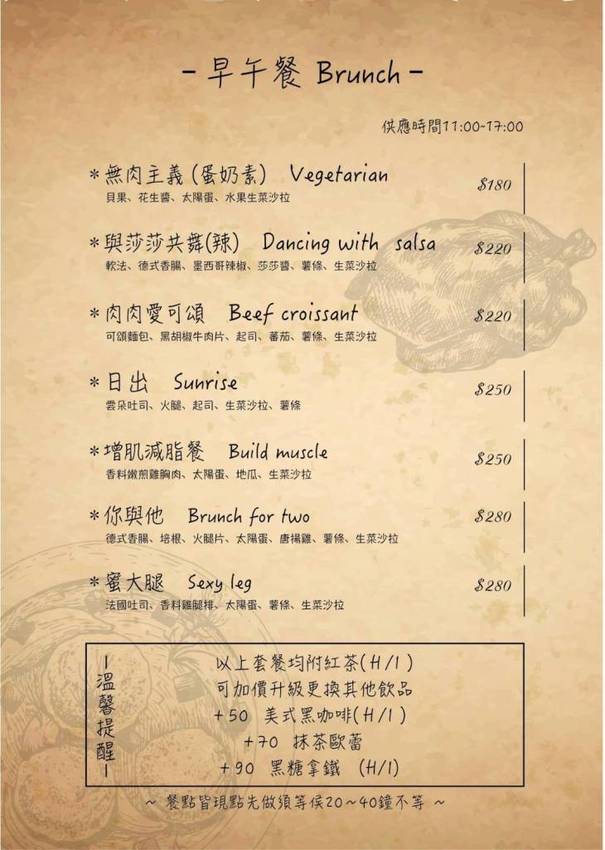 - 早午餐 Brunch -
供應時間11:00-17:00
*無肉主義(蛋奶素) Vegetarian $180
貝果、花生醬、太陽蛋、水果生菜沙拉
*與莎莎共舞(辣) Dancing with salsa $220
軟法、德式香腸、墨西哥辣椒、莎莎醬、薯條、生菜沙拉
*肉肉愛可頌 Beef croissant $220
可頌麵包、黑胡椒牛肉片、起司、蕃茄、薯條、生菜沙拉
*日出 Sunrise $250
雲朵吐司、火腿、起司、生菜沙拉、薯條
*增肌減脂餐 Build muscle $250
香料嫩煎雞胸肉、太陽蛋、地瓜、生菜沙拉
*你與他 Brunch for two $280
德式香腸、培根、火腿片、太陽蛋、唐揚雞、薯條、生菜沙拉
*蜜大腿 Sexy leg $280
法國吐司、香料雞腿排、太陽蛋、薯條、生菜沙拉
-溫馨提醒-
以上套餐均附紅茶(H/I)
可加價升級更換其他飲品
+50 美式黑咖啡(H/I)
+70 抹茶歐蕾
+90 黑糖拿鐵 (H/I)
~ 餐點皆現點先做須等侯20~40鐘不等 ~